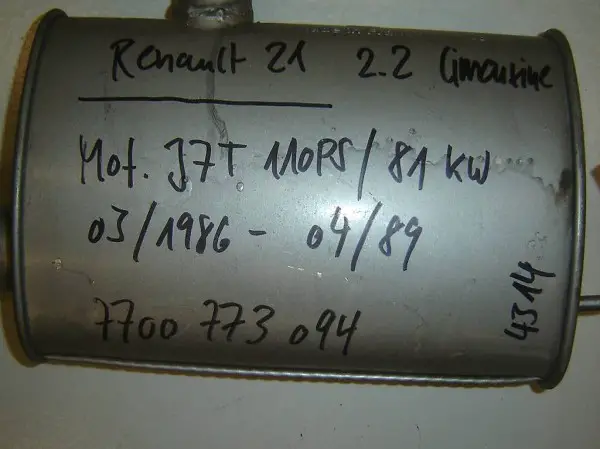 Renault 21 2.2 Limousine
Mot. J7T 110PS/81 KW
03/1986 - 04/89
7700 773 094
4314